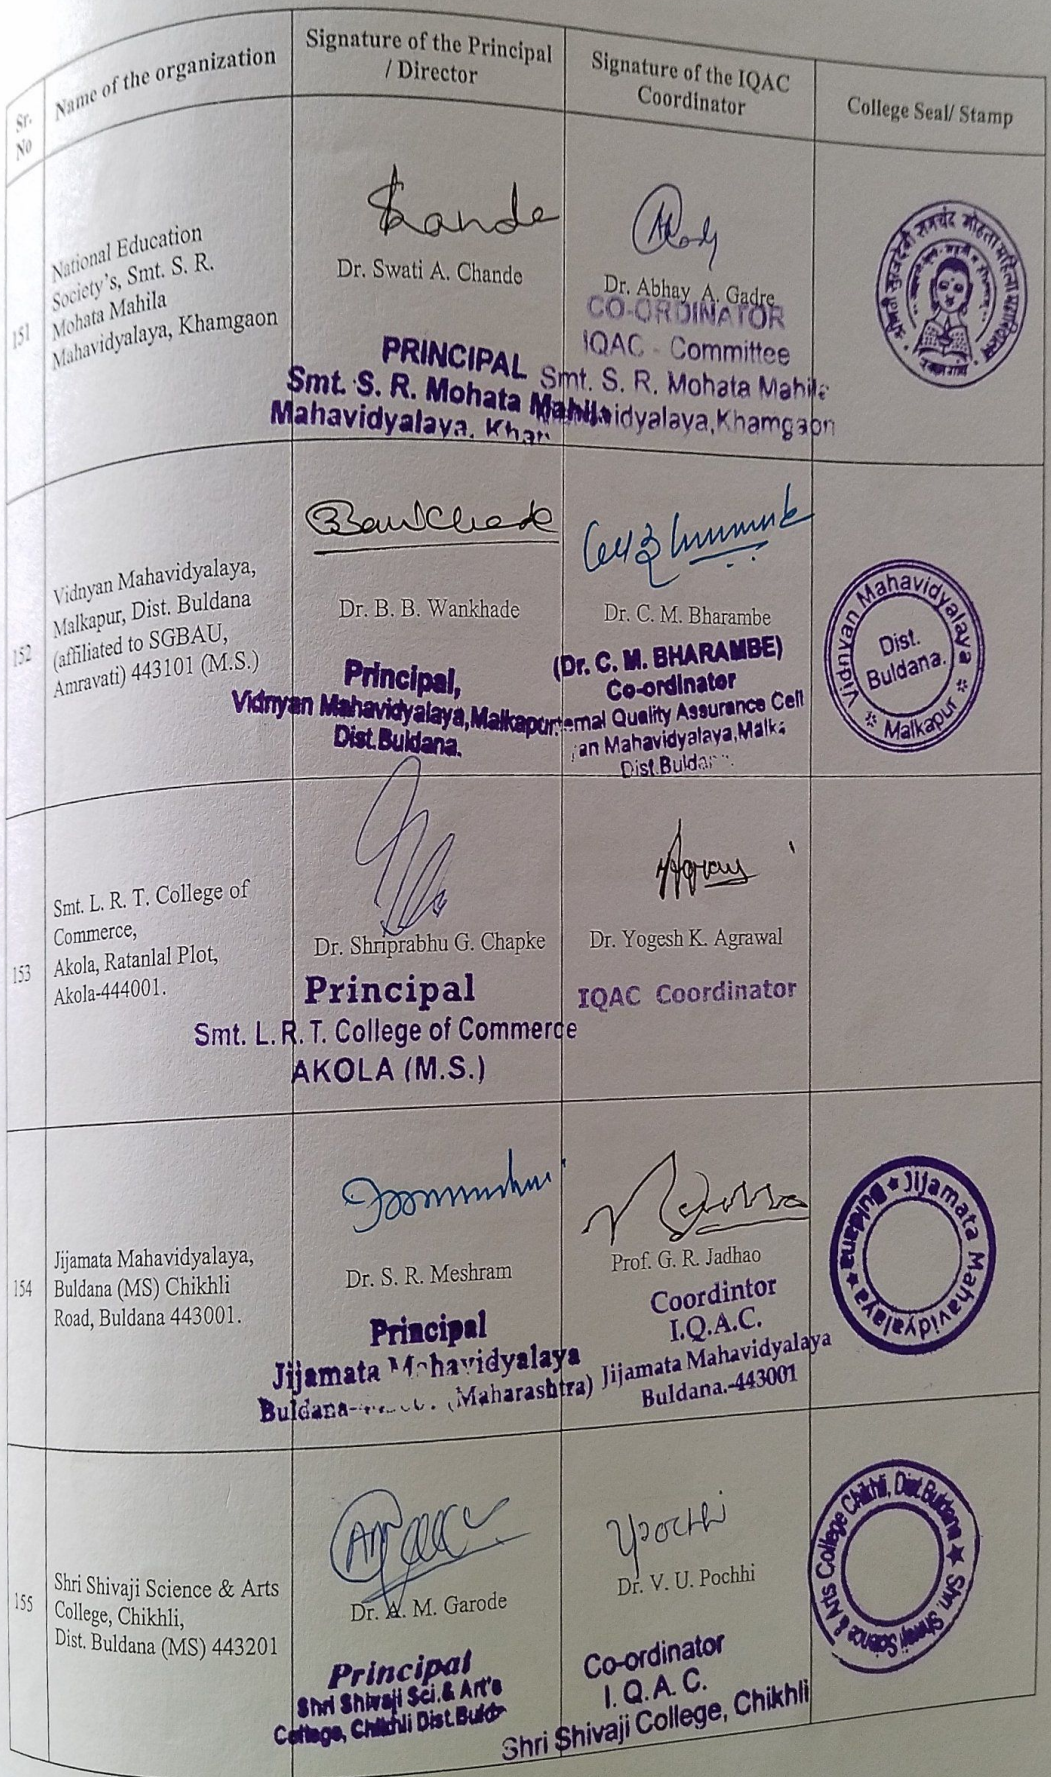 Sr. No
Name of the organization
Signature of the Principal
/ Director
Signature of the IQAC
Coordinator
College Seal/ Stamp
151
National Education
Society's, Smt. S. R.
Mohata Mahila
Mahavidyalaya, Khamgaon
Dr. Swati A. Chande
PRINCIPAL
Smt. S. R. Mohata Mahila
Mahavidyalaya,
Dr. Abhay A. Gadre
CO-ORDINATOR
IQAC - Committee
Smt. S. R. Mohata Mahila
Khamgaon
152
Vidnyan Mahavidyalaya,
Malkapur, Dist. Buldana
(affiliated to SGBAU,
Amravati) 443101 (M.S.)
Dr. B. B. Wankhade
Principal,
Vidnyan Mahavidyalaya, Malkapur
Dist.Buldana.
Dr. C. M. Bharambe
(Dr. C. M. BHARAMBE)
Co-ordinator
Quality Assurance Cell
Mahavidyalaya,
Vidnyan Mahavidyalaya
Dist.
Buldana.
Malkapur
153
Smt. L. R. T. College of
Commerce,
Akola, Ratanlal Plot,
Akola-444001.
Dr. Shriprabhu G. Chapke
Principal
Smt. L. R. T. College of Commerce
AKOLA (M.S.)
Dr. Yogesh K. Agrawal
IQAC Coordinator
154
Jijamata Mahavidyalaya,
Buldana (MS) Chikhli
Road, Buldana 443001.
Dr. S. R. Meshram
Principal
Jijamata Mahavidyalaya
Buldana- (Maharashtra)
Prof. G. R. Jadhao
Coordintor
I.Q.A.C.
Jijamata Mahavidyalaya
Buldana.-443001
Jijamata Mahavidyalaya ★ Buldana ★
155
Shri Shivaji Science & Arts
College, Chikhli,
Dist. Buldana (MS) 443201
Dr. A. M. Garode
Principal
Shri Shivaji Sci.& Art's
College, Chikhli Dist.
Dr. V. U. Pochhi
Co-ordinator
I. Q. A. C.
Shri Shivaji College, Chikhli
Shri. Shivaji Science & Arts College Chikhli, Dist.Buldana ★